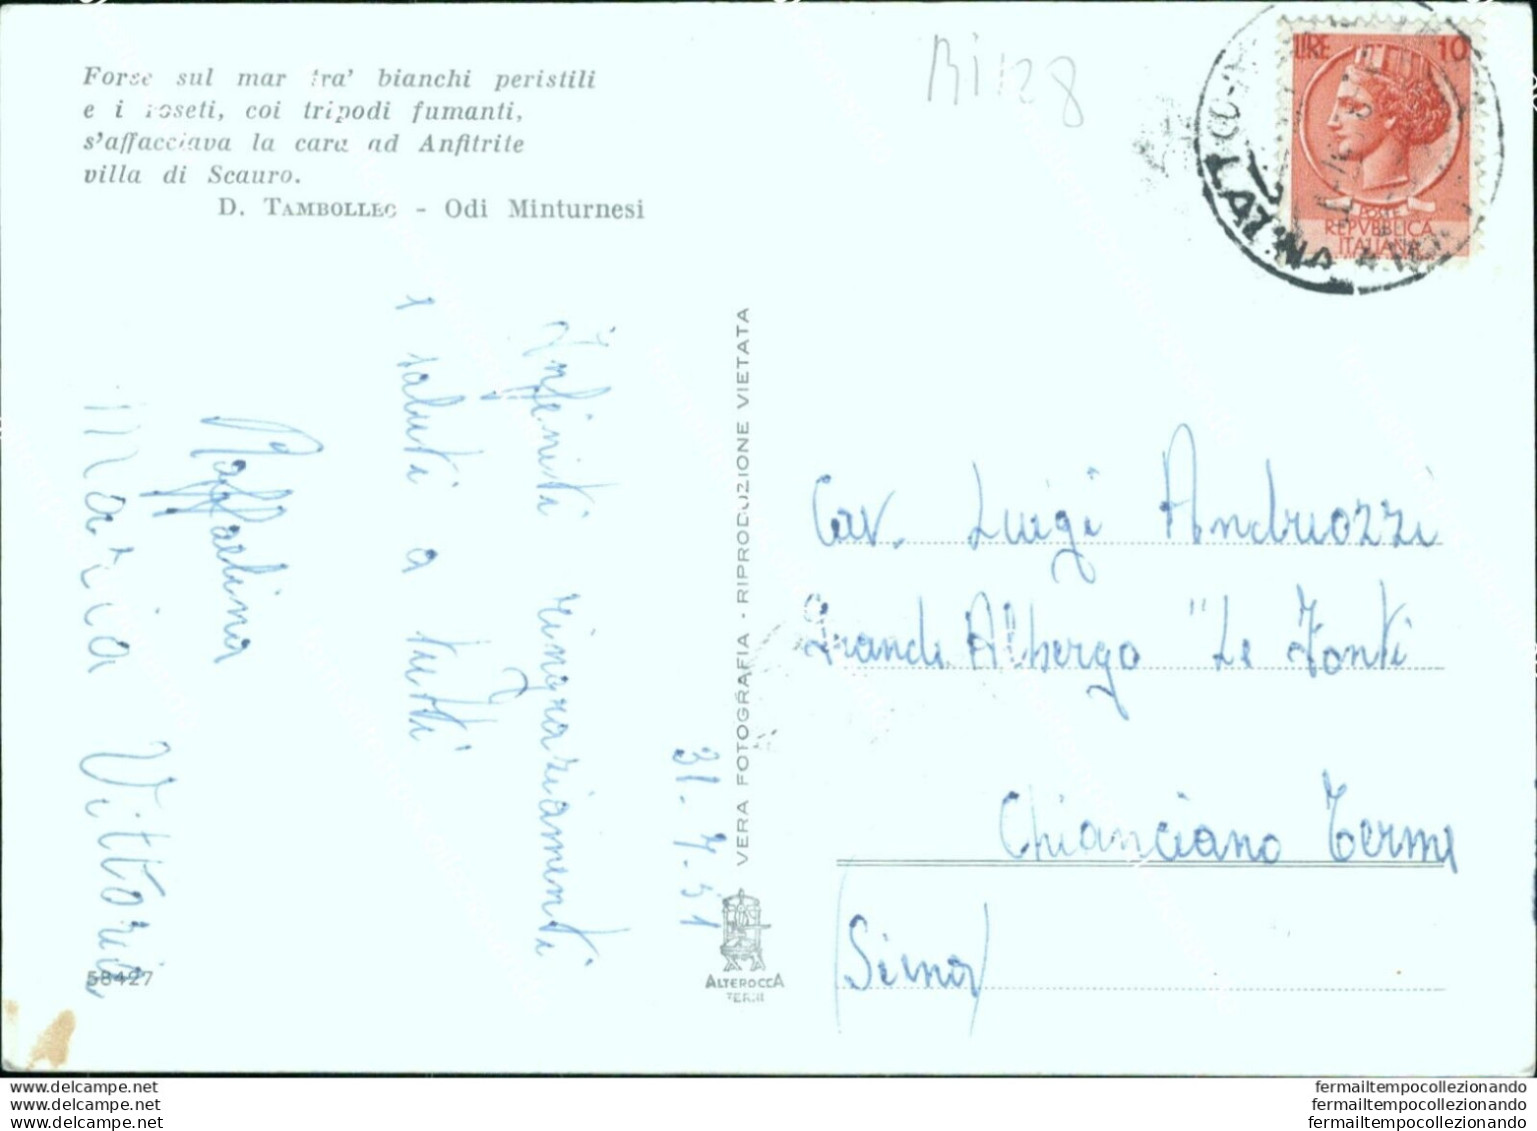 Forse sul mar tra' bianchi peristili
e i roseti, coi tripodi fumanti,
s'affacciava la cara ad Anfitrite
villa di Scauro.
D. TAMBOLLEO - Odi Minturnesi
Ri 128
LIRE 10
POSTE
REPVBBLICA
ITALIANA
LATINA
31-7-51
Infiniti ringraziamenti
e saluti a tutti
Raffaelina
Maria Vittoria
58427
VERA FOTOGRAFIA - RIPRODUZIONE VIETATA
ALTEROCCA
TERNI
Cav. Luigi Andruozzi
Grande Albergo "Le Fonti
Chianciano Terme
(Siena)
www.delcampe.net
www.delcampe.net
www.delcampe.net
fermailtempocollezionando
fermailtempocollezionando
fermailtempocollezionando